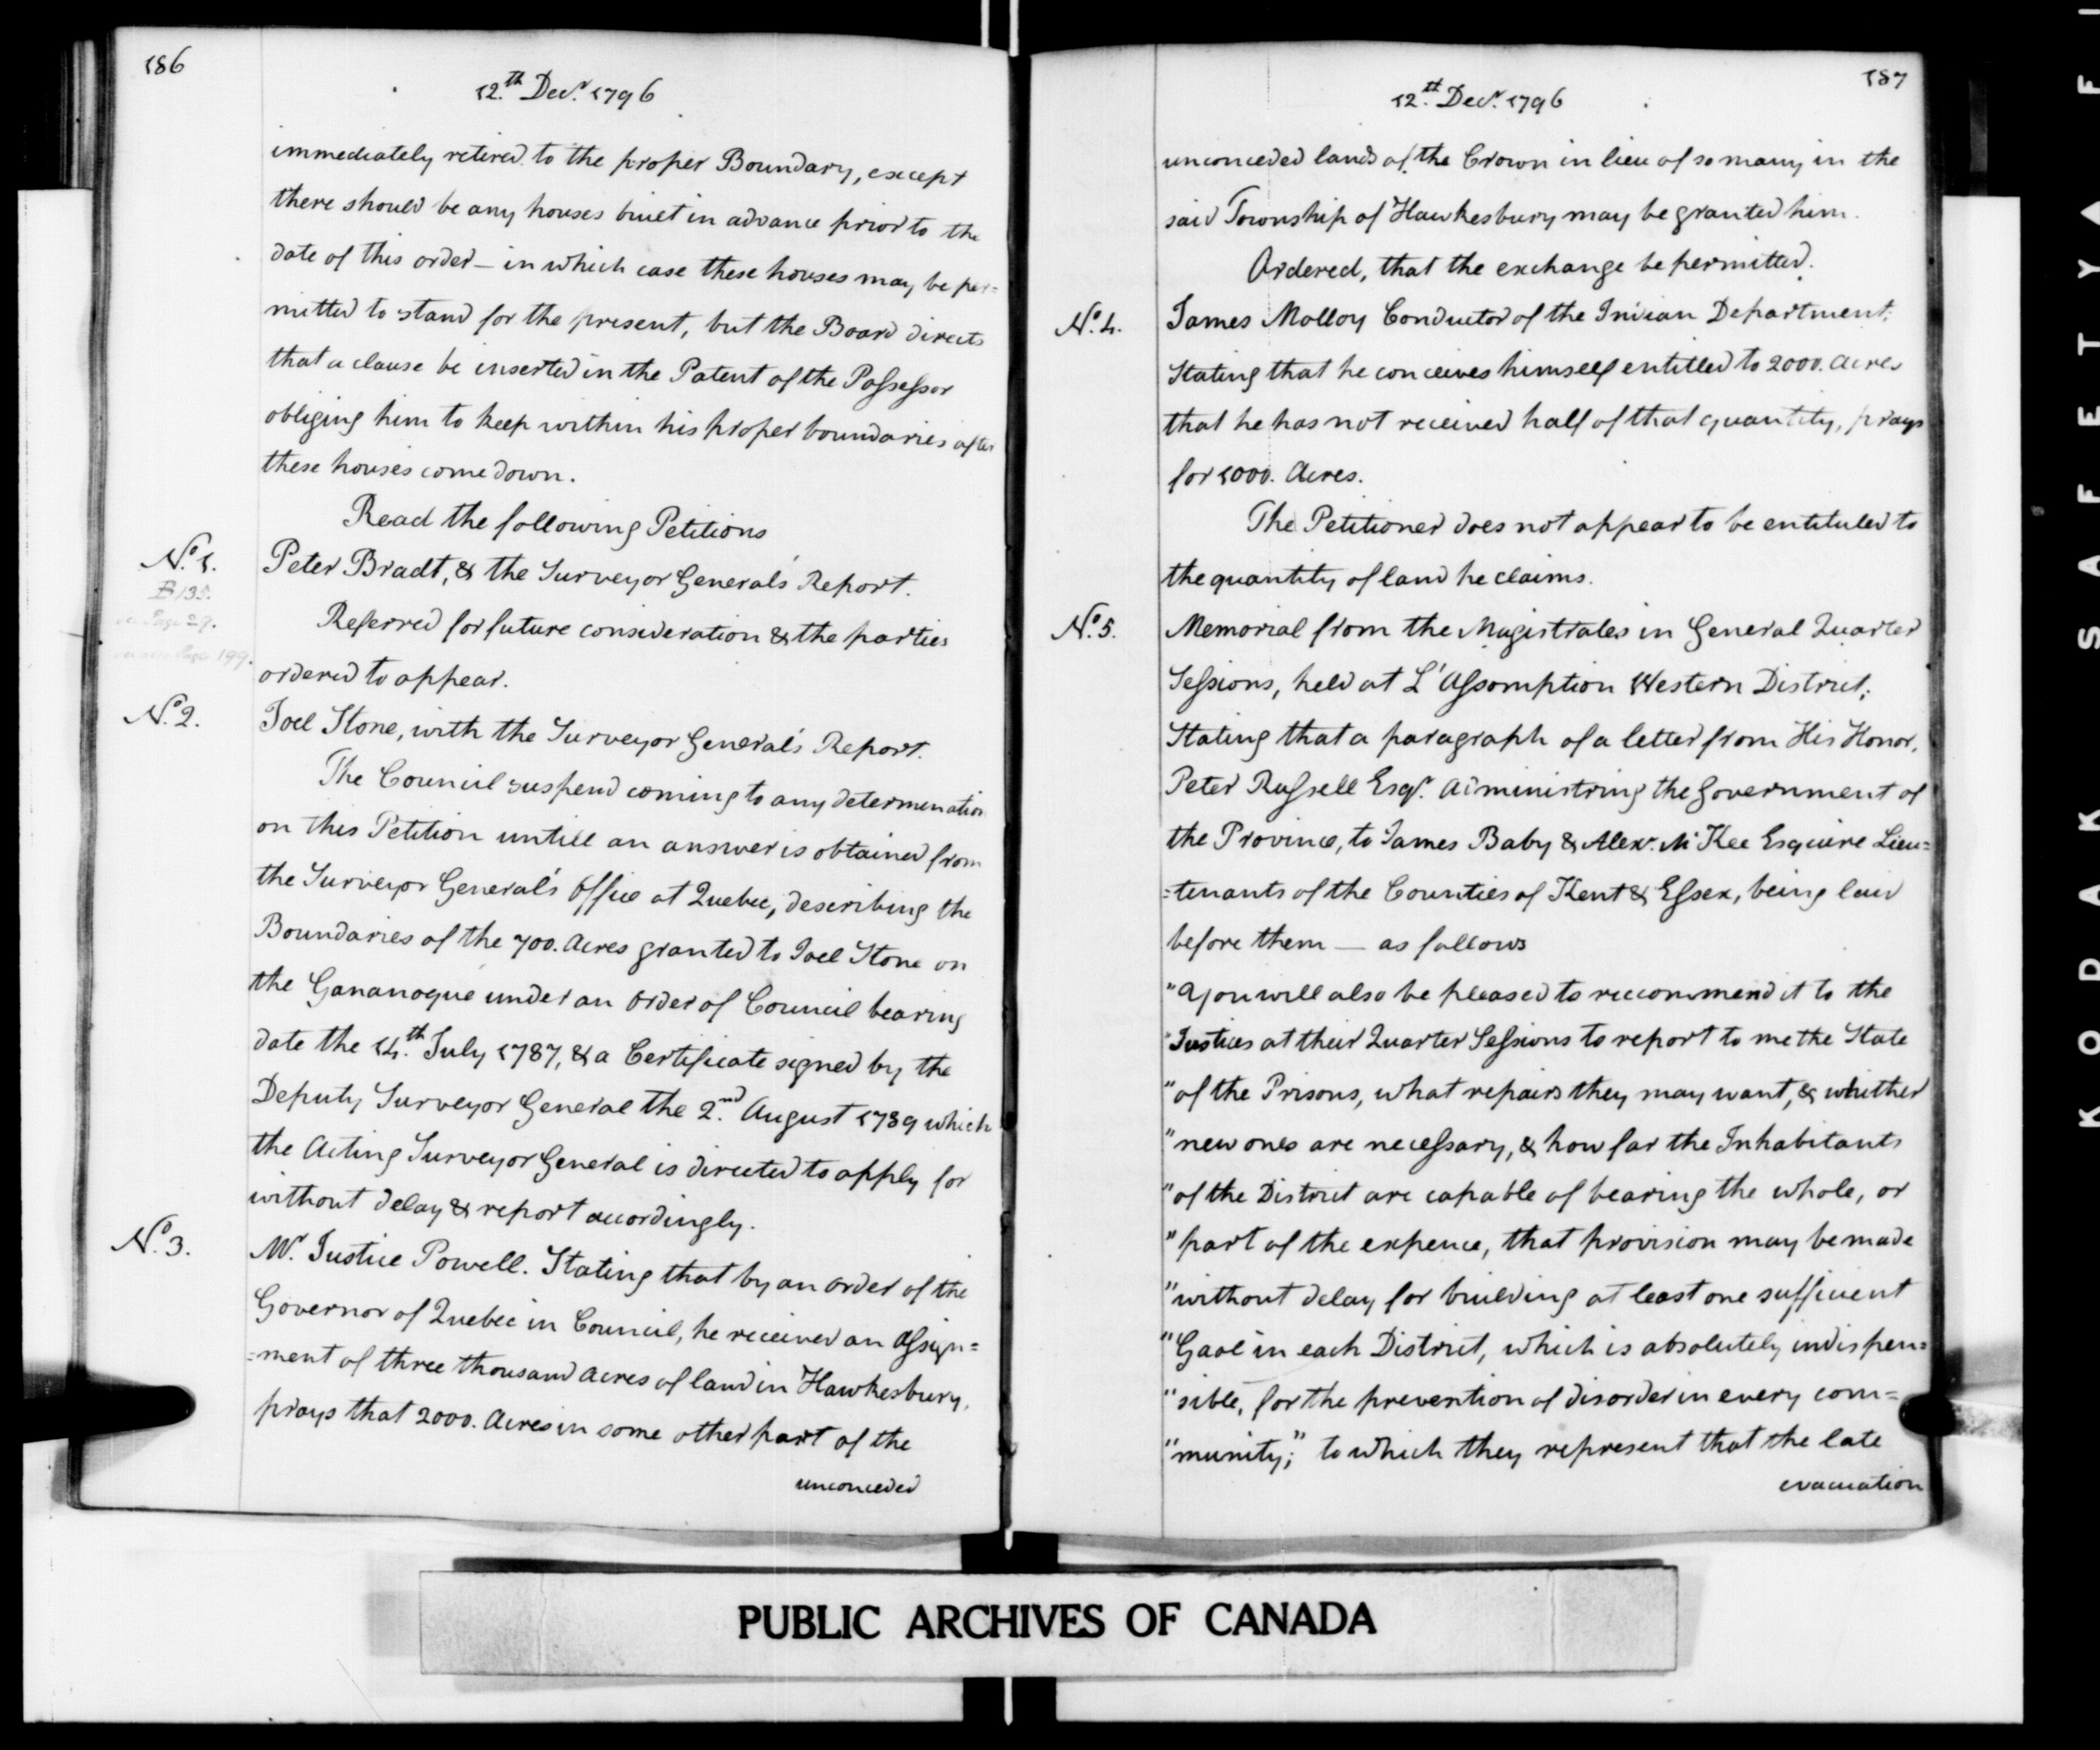 186
12.th Decr. 1796
immediately retired to the proper Boundary, except
there should be any houses built in advance prior to the
date of this order — in which case these houses may be per=
mitted to stand for the present, but the Board directs
that a clause be inserted in the Patent of the Possessor
obliging him to keep within his proper boundaries after
these houses come down.
Read the following Petitions
No. 1. Peter Bradt, & the Surveyor General's Report.
B 135.
Page 29.
Page 199.
Referred for future consideration & the parties
ordered to appear.
No. 2. Joel Stone, with the Surveyor General's Report.
The Council suspend coming to any determination
on this Petition untill an answer is obtained from
the Surveyor General's Office at Quebec, describing the
Boundaries of the 700. Acres granted to Joel Stone on
the Gananoque under an order of Council bearing
date the 14.th July 1787, & a Certificate signed by the
Deputy Surveyor General the 2.nd August 1789 which
the Acting Surveyor General is directed to apply for
without delay & report accordingly.
No. 3. Mr. Justice Powell. Stating that by an order of the
Governor of Quebec in Council, he received an Assign=
=ment of three thousand Acres of land in Hawkesbury,
prays that 2000. Acres in some other part of the
unconceded
187
12.th Decr. 1796
unconceded lands of the Crown in lieu of so many in the
said Township of Hawkesbury may be granted him.
Ordered, that the exchange be permitted.
No. 4. James Molloy Conductor of the Indian Department,
Stating that he conceives himself entitled to 2000. Acres
that he has not received half of that quantity, prays
for 1000. Acres.
The Petitioner does not appear to be entituled to
the quantity of land he claims.
No. 5. Memorial from the Magistrates in General Quarter
Sessions, held at L'Assomption Western District;
Stating that a paragraph of a letter from His Honor,
Peter Russell Esqr. administring the Government of
the Province, to James Baby & Alexr. McKee Esquire Lieu=
=tenants of the Counties of Kent & Essex, being laid
before them — as follows
"You will also be pleased to reccommend it to the
"Justices at their Quarter Sessions to report to me the State
"of the Prisons, what repairs they may want, & whither
"new ones are necessary, & how far the Inhabitants
"of the District are capable of bearing the whole, or
"part of the expence, that provision may be made
"without delay for building at least one sufficient
"Gaol in each District, which is absolutely indispen=
"sible, for the prevention of disorder in every com=
"munity;" to which they represent that the late
evacuation
PUBLIC ARCHIVES OF CANADA
KODAK SAFETY